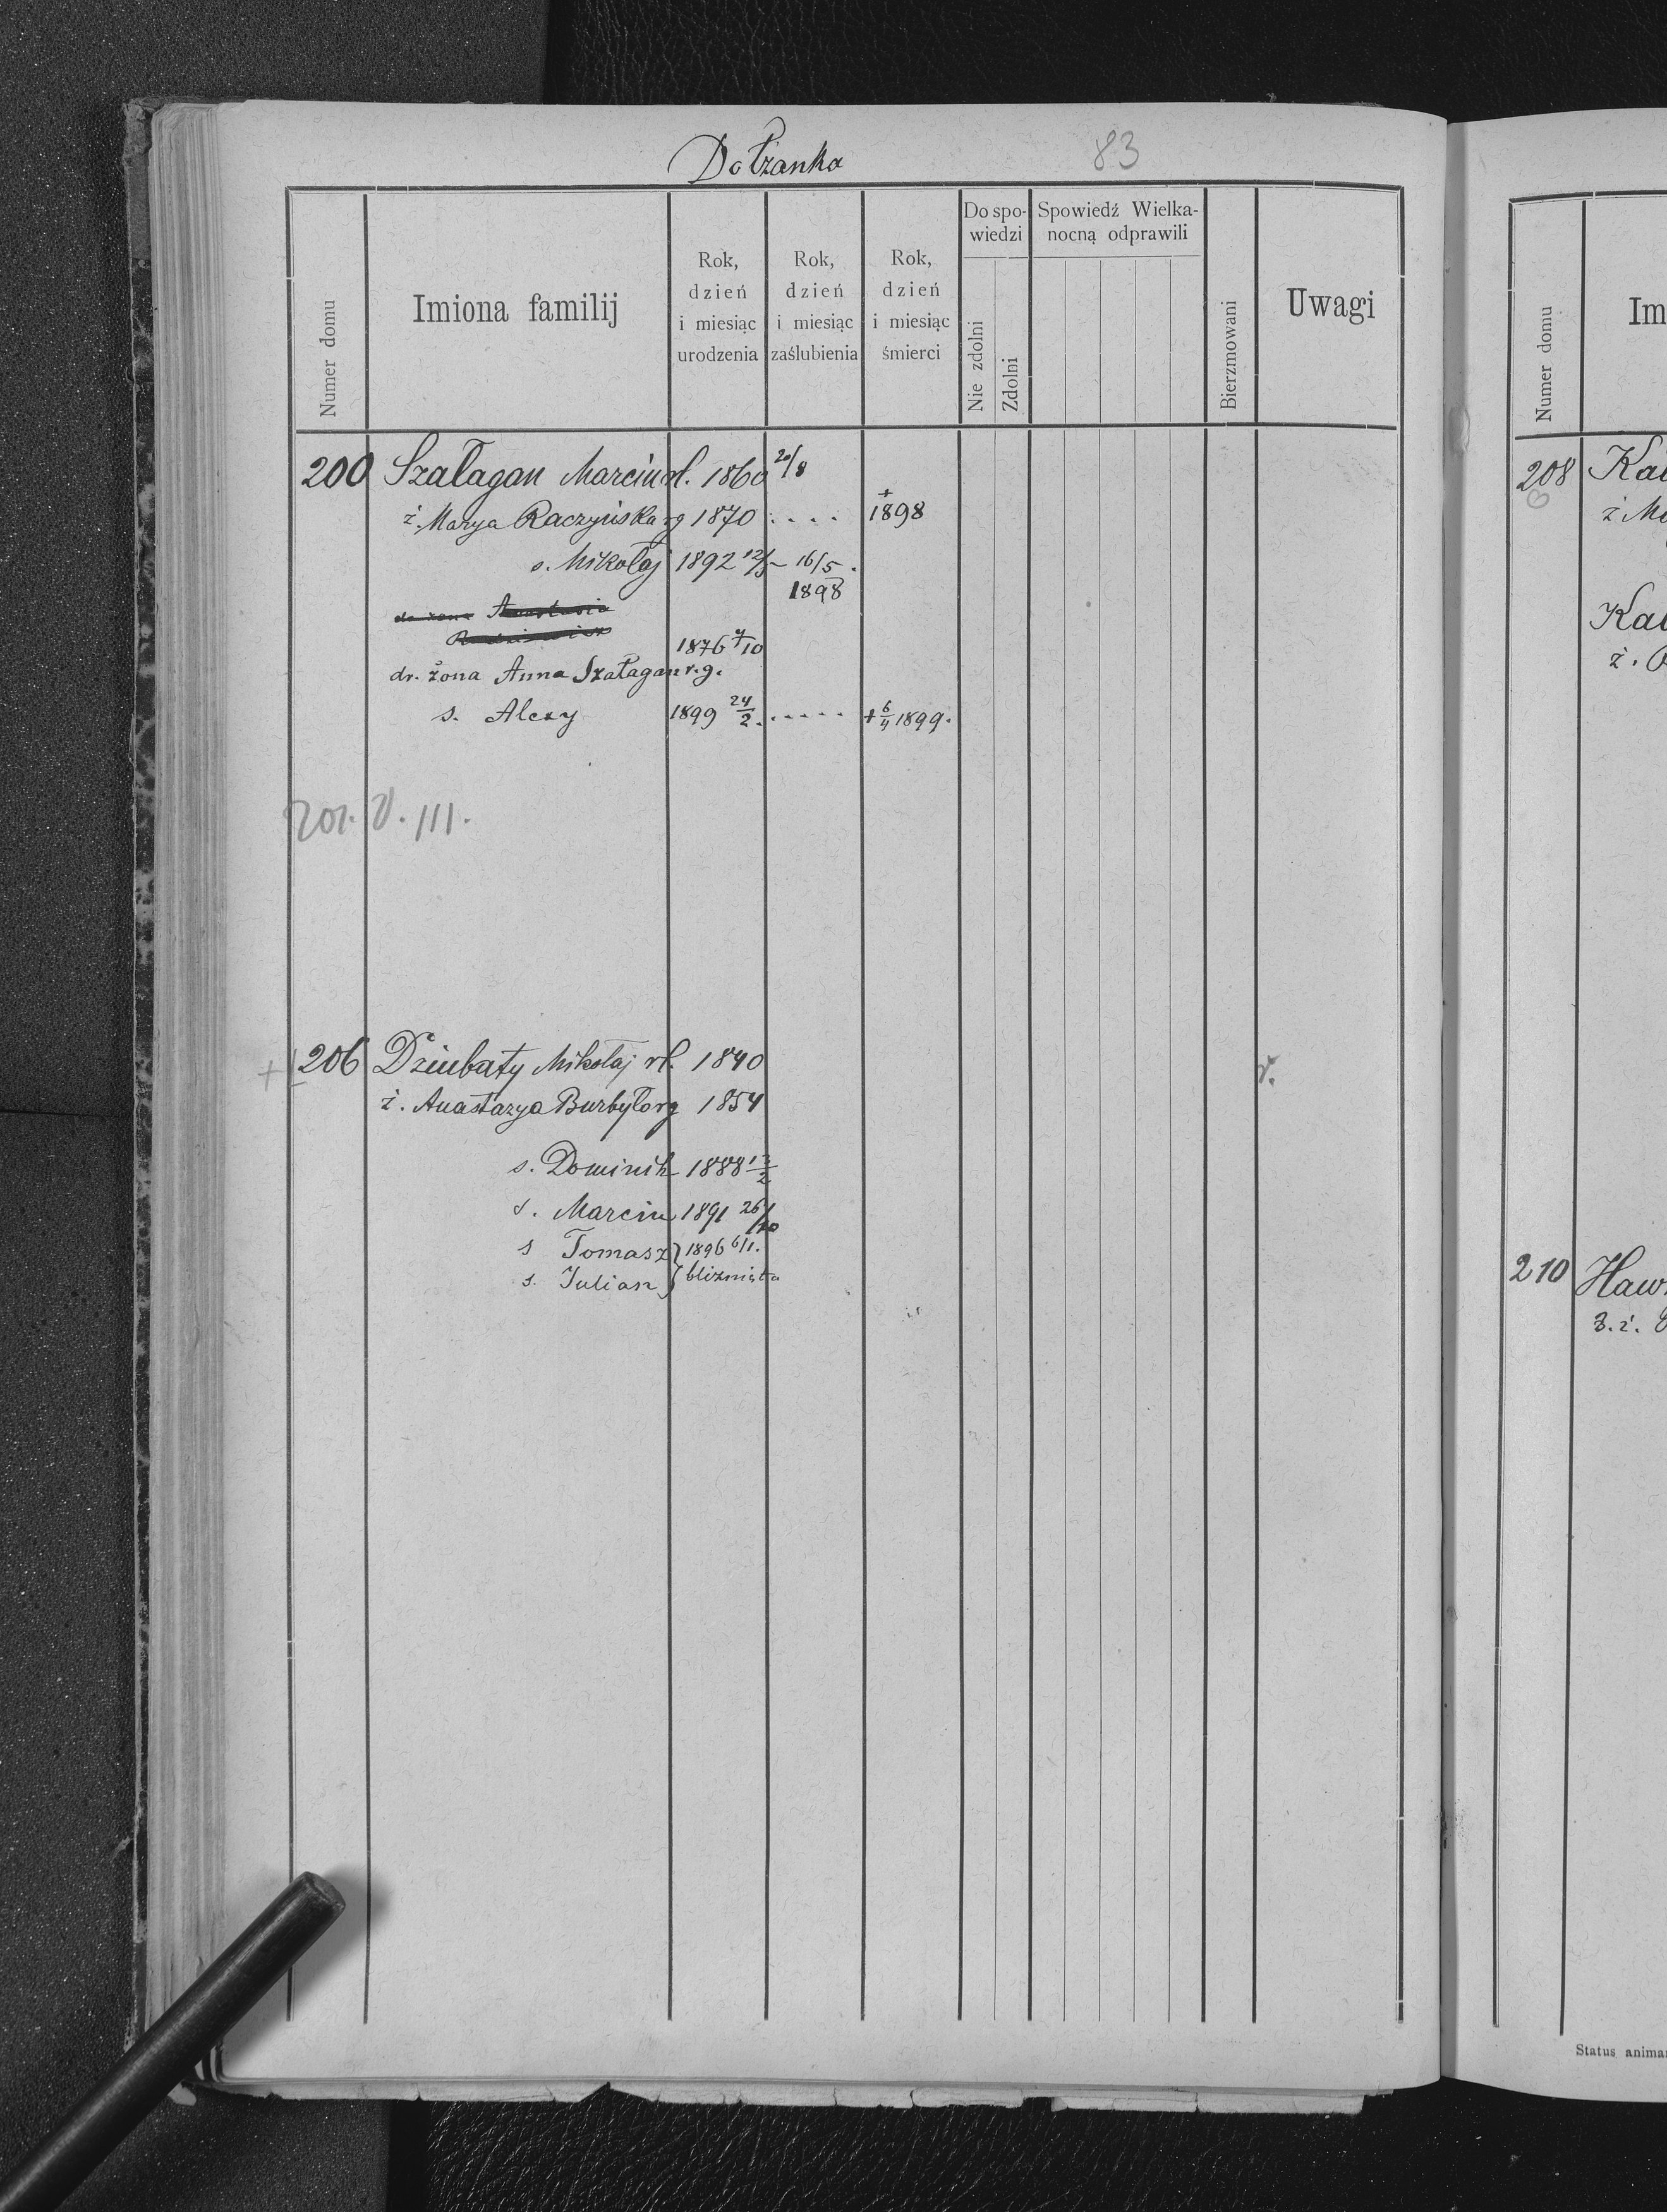 Dołżanka 83
Numer domu
Imiona familij
Rok, dzień i miesiąc urodzenia
Rok, dzień i miesiąc zaślubienia
Rok, dzień i miesiąc śmierci
Do spo-wiedzi
Nie zdolni
Zdolni
Spowiedź Wielka-nocną odprawili
Bierzmowani
Uwagi
200 Szałagan Marcin rl. 1860 20/8
ż. Marya Raczyńska rg 1870 . . . . + 1898
s. Mikołaj 1892 12/5 – 16/5 .
1898
dr żona Anastasia
1876 7/10
dr. żona Anna Szałagan r.g.
s. Alexy 1899 24/2 . . . . . . + 6/4 1899.
201. V. III.
+ 206 Dziubaty Mikołaj rl. 1840 r.
ż. Anastazya Burbyło rg 1854
s. Dominik 1888 13/2
s. Marcin 1891 26/10
s Tomasz } 1896 6/1.
s. Julian } bliźnięta
Numer domu
Im
208 Kau
ż Ma
Kau
ż.
210 Haw
3. ż.
Status anima